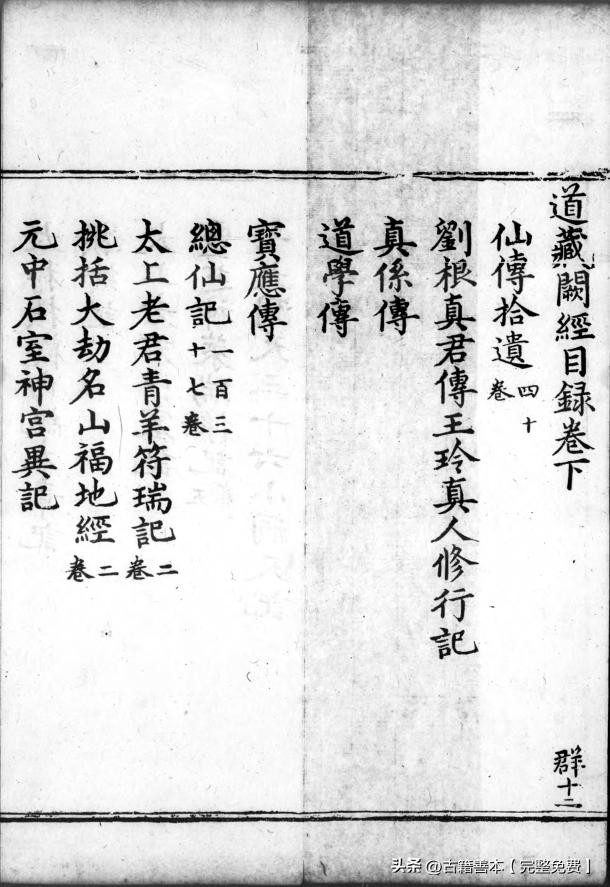 道藏闕經目録卷下 群十二
仙傳拾遺 四十卷
劉根真君傳王玲真人修行記
真係傳
道學傳
寶應傳
總仙記 一百三十七卷
太上老君青羊符瑞記 二卷
挑括大劫名山福地經 二卷
元中石室神宫異記
头条 @古籍善本【完整免费】